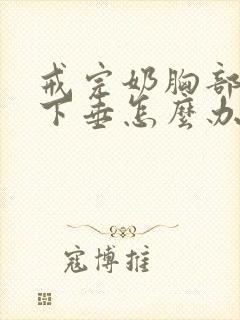 戒完奶胸部
下垂怎麼办
寇博推